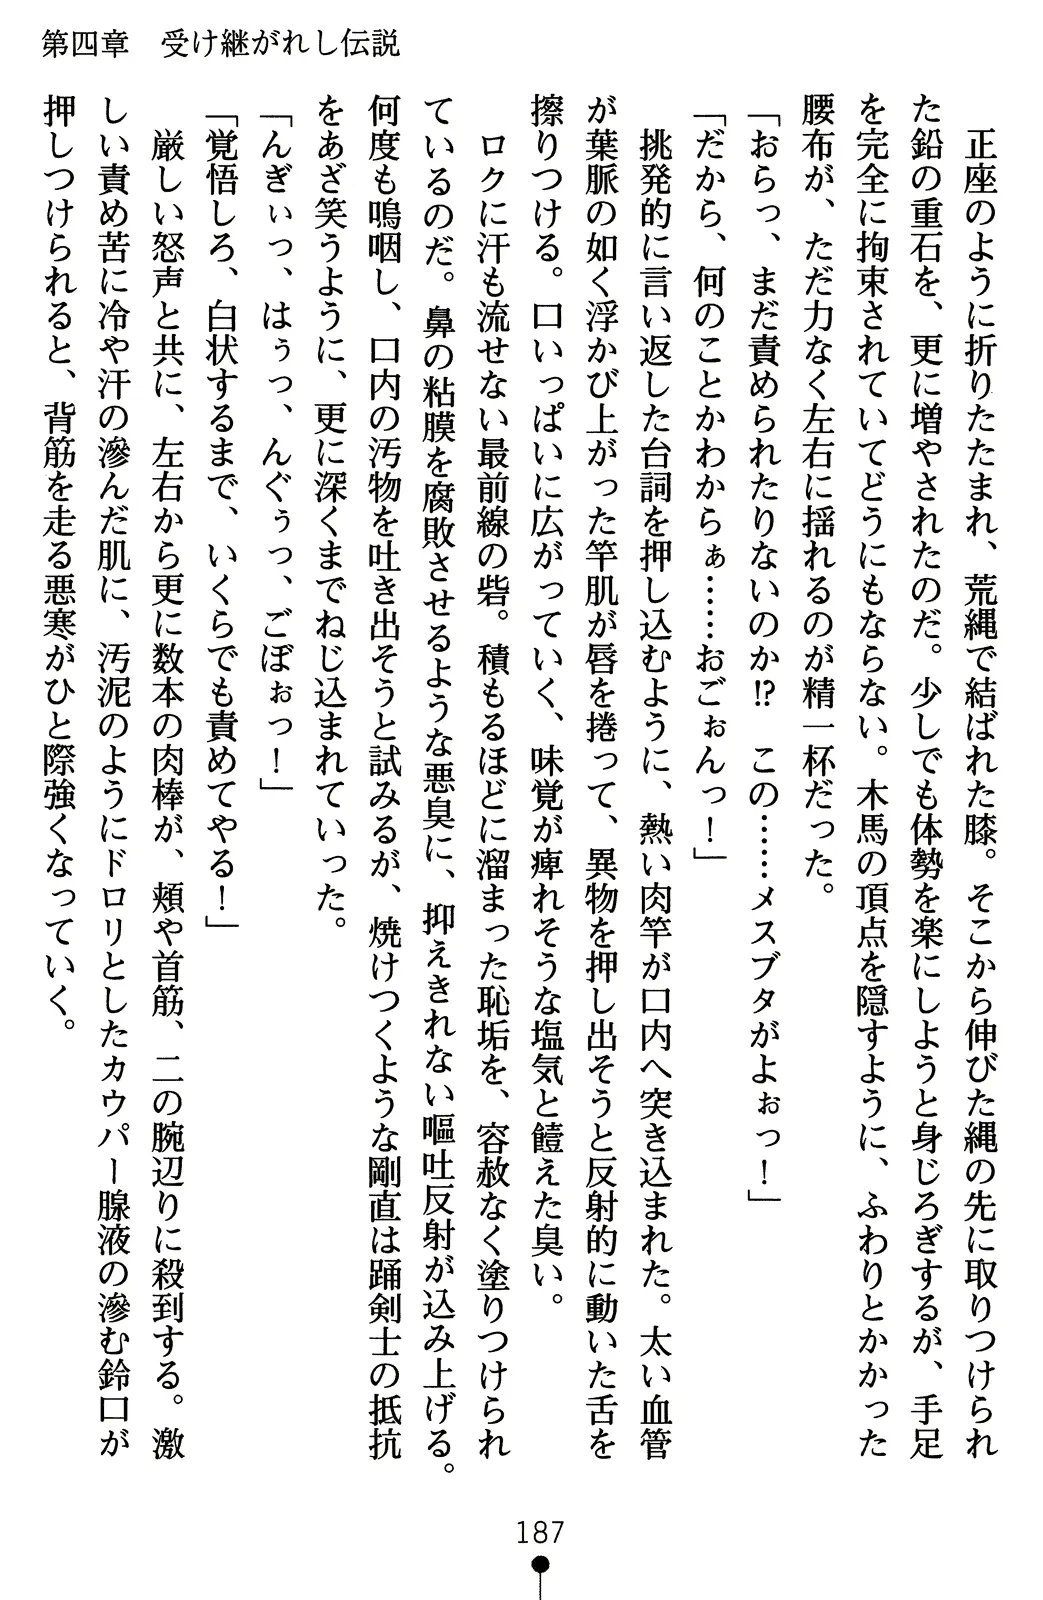 第四章　受け継がれし伝説
　正座のように折りたたまれ、荒縄で結ばれた膝。そこから伸びた縄の先に取りつけられ
た鉛の重石を、更に増やされたのだ。少しでも体勢を楽にしようと身じろぎするが、手足
を完全に拘束されていてどうにもならない。木馬の頂点を隠すように、ふわりとかかった
腰布が、ただ力なく左右に揺れるのが精一杯だった。
「おらっ、まだ責められたりないのか!?　この……メスブタがよぉっ！」
「だから、何のことかわからぁ……おごぉんっ！」
　挑発的に言い返した台詞を押し込むように、熱い肉竿が口内へ突き込まれた。太い血管
が葉脈の如く浮かび上がった竿肌が唇を捲って、異物を押し出そうと反射的に動いた舌を
擦りつける。口いっぱいに広がっていく、味覚が痺れそうな塩気と饐えた臭い。
　ロクに汗も流せない最前線の砦。積もるほどに溜まった恥垢を、容赦なく塗りつけられ
ているのだ。鼻の粘膜を腐敗させるような悪臭に、抑えきれない嘔吐反射が込み上げる。
何度も嗚咽し、口内の汚物を吐き出そうと試みるが、焼けつくような剛直は踊剣士の抵抗
をあざ笑うように、更に深くまでねじ込まれていった。
「んぎぃっ、はぅっ、んぐぅっ、ごぼぉっ！」
「覚悟しろ、白状するまで、いくらでも責めてやる！」
　厳しい怒声と共に、左右から更に数本の肉棒が、頬や首筋、二の腕辺りに殺到する。激
しい責め苦に冷や汗の滲んだ肌に、汚泥のようにドロリとしたカウパー腺液の滲む鈴口が
押しつけられると、背筋を走る悪寒がひと際強くなっていく。
187